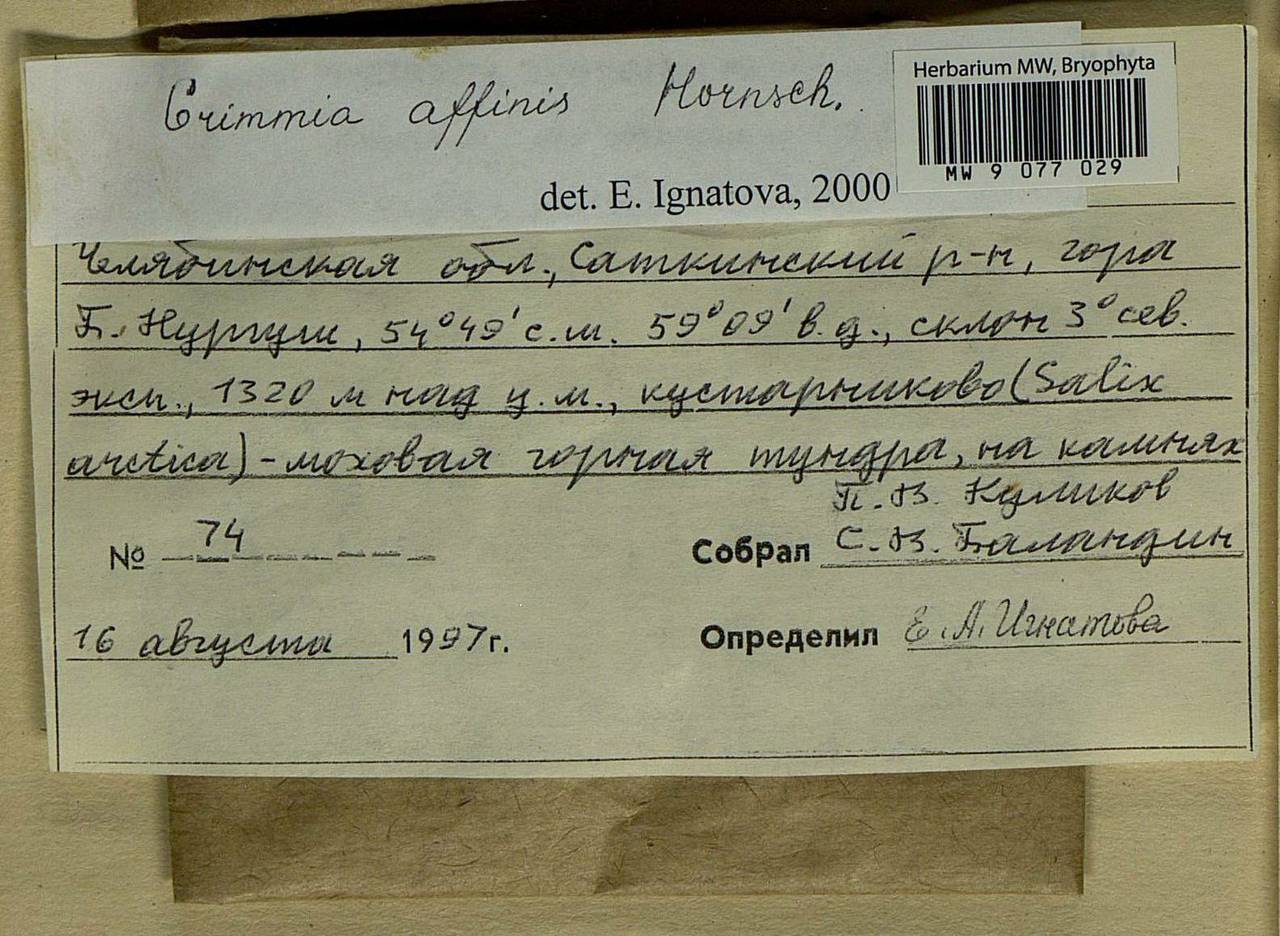 Grimmia affinis Hornsch.
Herbarium MW, Bryophyta
MW 9 077 029
det. E. Ignatova, 2000
Челябинская обл., Саткинский р-н, гора
Б. Нургуш, 54°49' с.ш. 59°09' в.д., склон 3° сев.
эксп., 1320 м над у.м., кустарничково (Salix
arctica) - моховая горная тундра, на камнях
№ 74
Собрал П.В. Куликов
С.В. Баландин
16 августа 1997г.
Определил Е.А. Игнатова